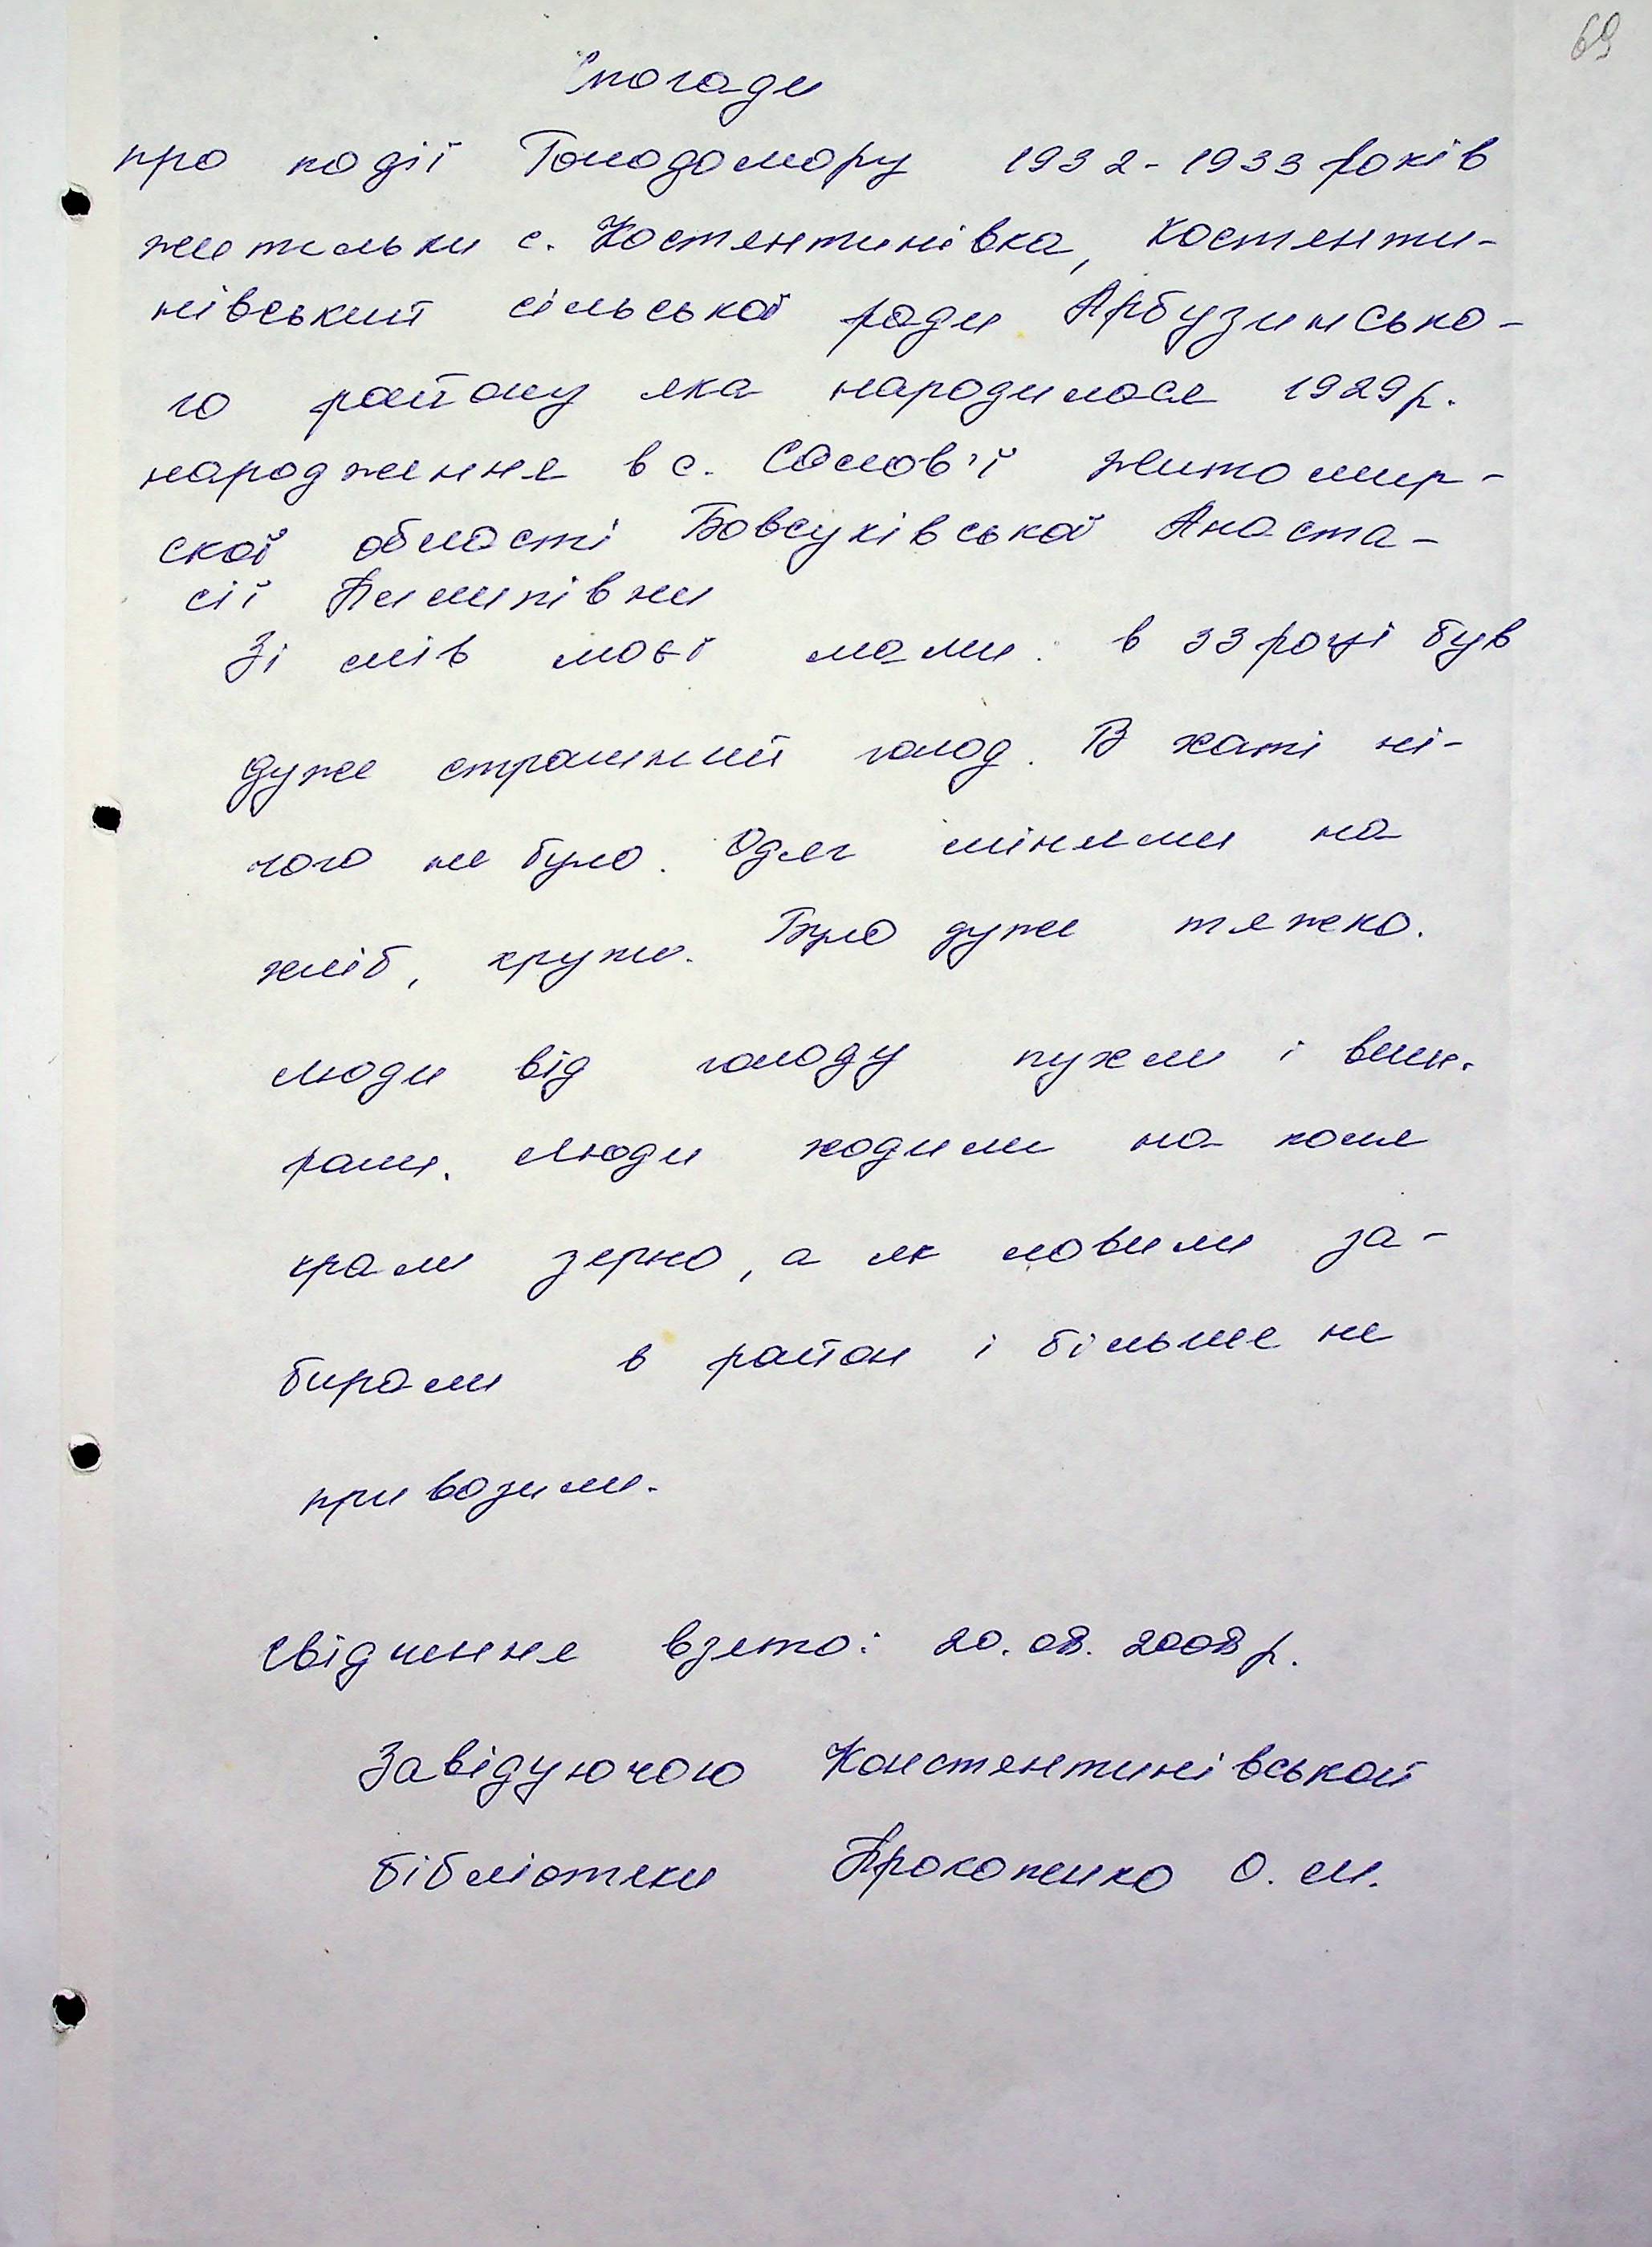 69
Спогади
про події Голодомору 1932-1933 років
жительки с. Костянтинівка, Костянти-
нівський сільської ради Арбузинсько-
го району яка народилася 1929р.
народження в с. Солов'ї Житомир-
ської області Бовсуківської Анаста-
сії Пилипівни
Зі слів моєї мами: в 33 році був
дуже страшний голод. В хаті ні-
чого не було. Одяг міняли на
хліб, крупу. Було дуже тяжко.
Люди від голоду пухли і вми-
рали. Люди ходили на поля
крали зерно, а як ловили за-
бирали в район і більше не
привозили.
Свідчення взято: 20.08.2008р.
Завідуючою Констянтинівської
бібліотеки Прокопенко О.М.